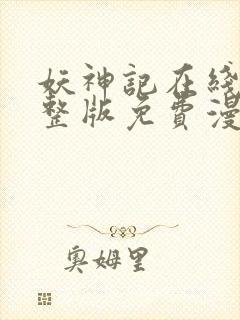 妖神記在綫
整版免費漫
奧姆里